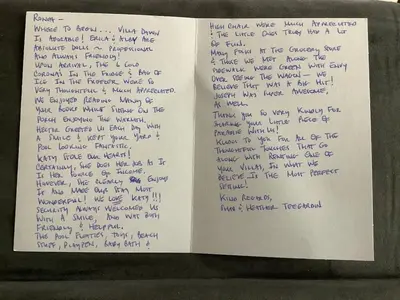 Ronda -
Where to begin... Villa Dawn
is adorable! Erica & Alex are
absolute dolls ~ professional
and always friendly!
Upon arrival, the 6 cold
Coronas in the fridge & bag of
ice in the freezer were so
very thoughtful & much appreciated.
We enjoyed reading many of
your books while fishing on the
porch enjoying the warmth.
Hector greeted us each day with
a smile & kept your yard &
pool looking fantastic.
Katy stole our heart!
Certainly, she does her job as it
is her source of income,
however, she clearly enjoys
it and made our stay most
wonderful! We love Katy!!!
Security always welcomed us
with a smile, and was both
friendly & helpful.
The pool floaties, toys, beach
stuff, playpen, baby bath &
high chair were much appreciated
& the little ones truly had a lot
of fun.
Many folks at the grocery store
& those we met along the
sidewalk were green with envy
over seeing the wagon - we
believe that was a big hit!
Joseph was over awesome,
as well.
Thank you so very kindly for
sharing your little piece of
paradise with us!
Kudos to you for all of the
thoughtful touches that go
along with renting one of
your villas, in what we
believe is the most perfect
setting!
Kind regards,
& Heather Teegardin